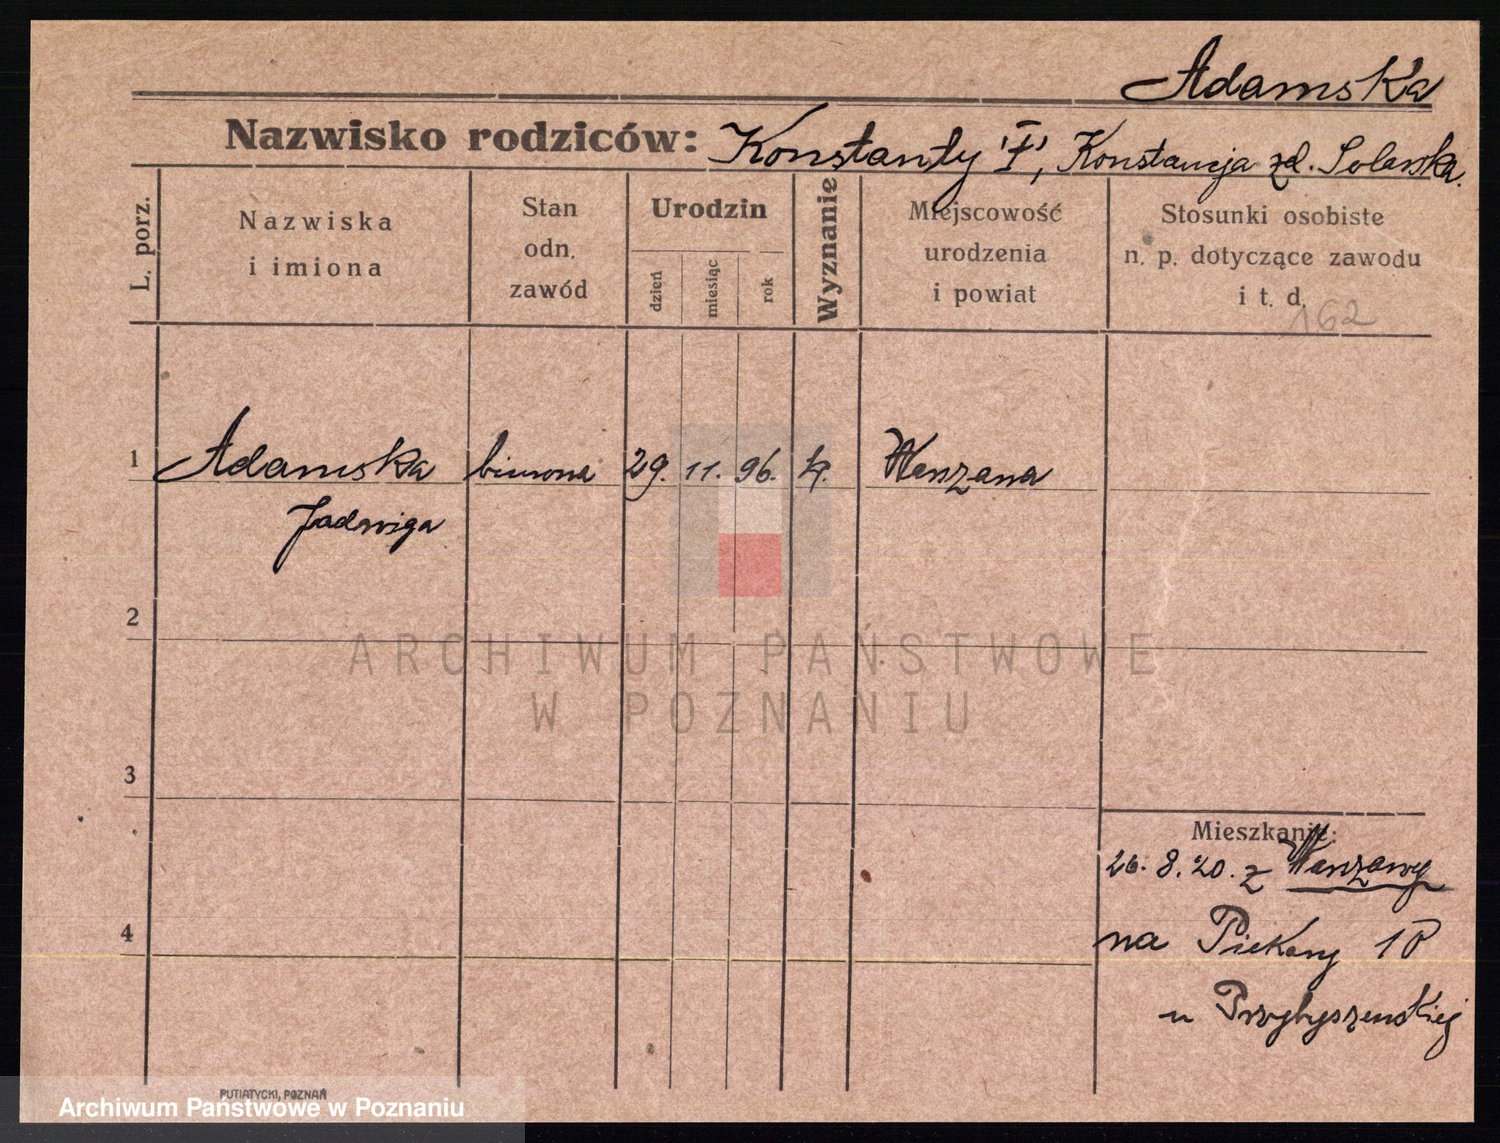 Adamska
Nazwisko rodziców: Konstanty "†", Konstancja zd.
L. porz.
Nazwiska
i imiona
Stan
odn.
zawód
Urodzin
dzień
miesiąc
rok
Wyznanie
Miejscowość
urodzenia
i powiat
Stosunki osobiste
n. p. dotyczące zawodu
i t. d.
162
1 Adamska biurowa 29. 11. 96. k. Warszawa
Jadwiga
2
ARCHIWUM PAŃSTWOWE
W POZNANIU
3
Mieszkanie:
26. 8. 20. z Warszawy
4
na Piekary 1
u Przybyszewskiej
PUTIATYCKI, POZNAŃ
Archiwum Państwowe w Poznaniu